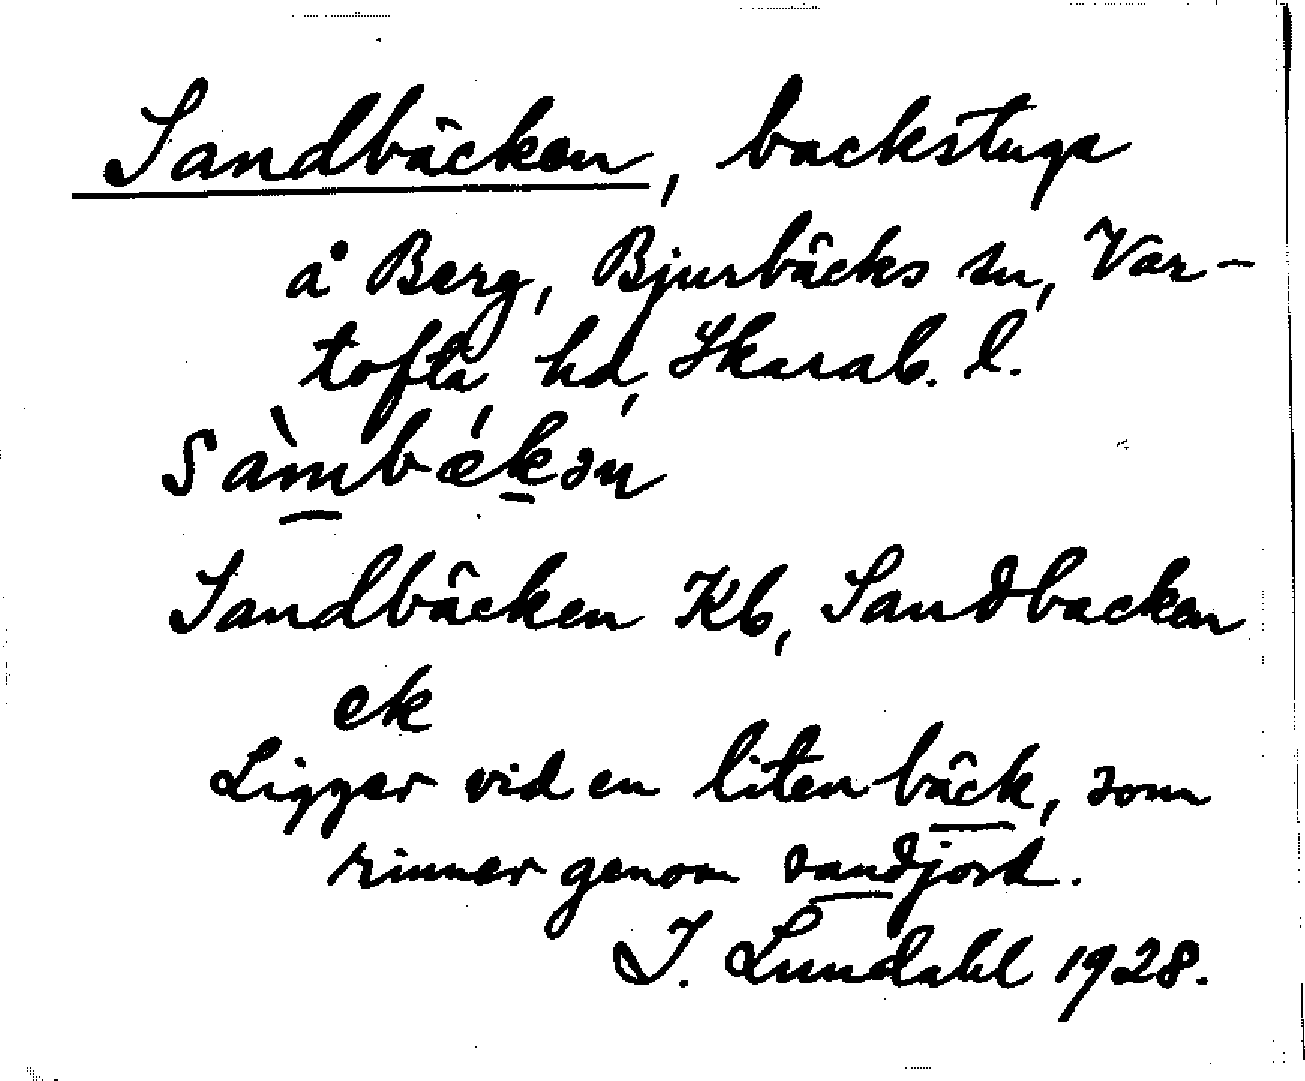 Sandbäcken, backstuga
å Berg, Bjurbäcks sn, Var-
tofta hd, Skarab. l.
sàmbækən
Sandbäcken Kb, Sandbacken
ek
Ligger vid en liten bäck, som
rinner genom sandjord.
I. Lundahl 1928.